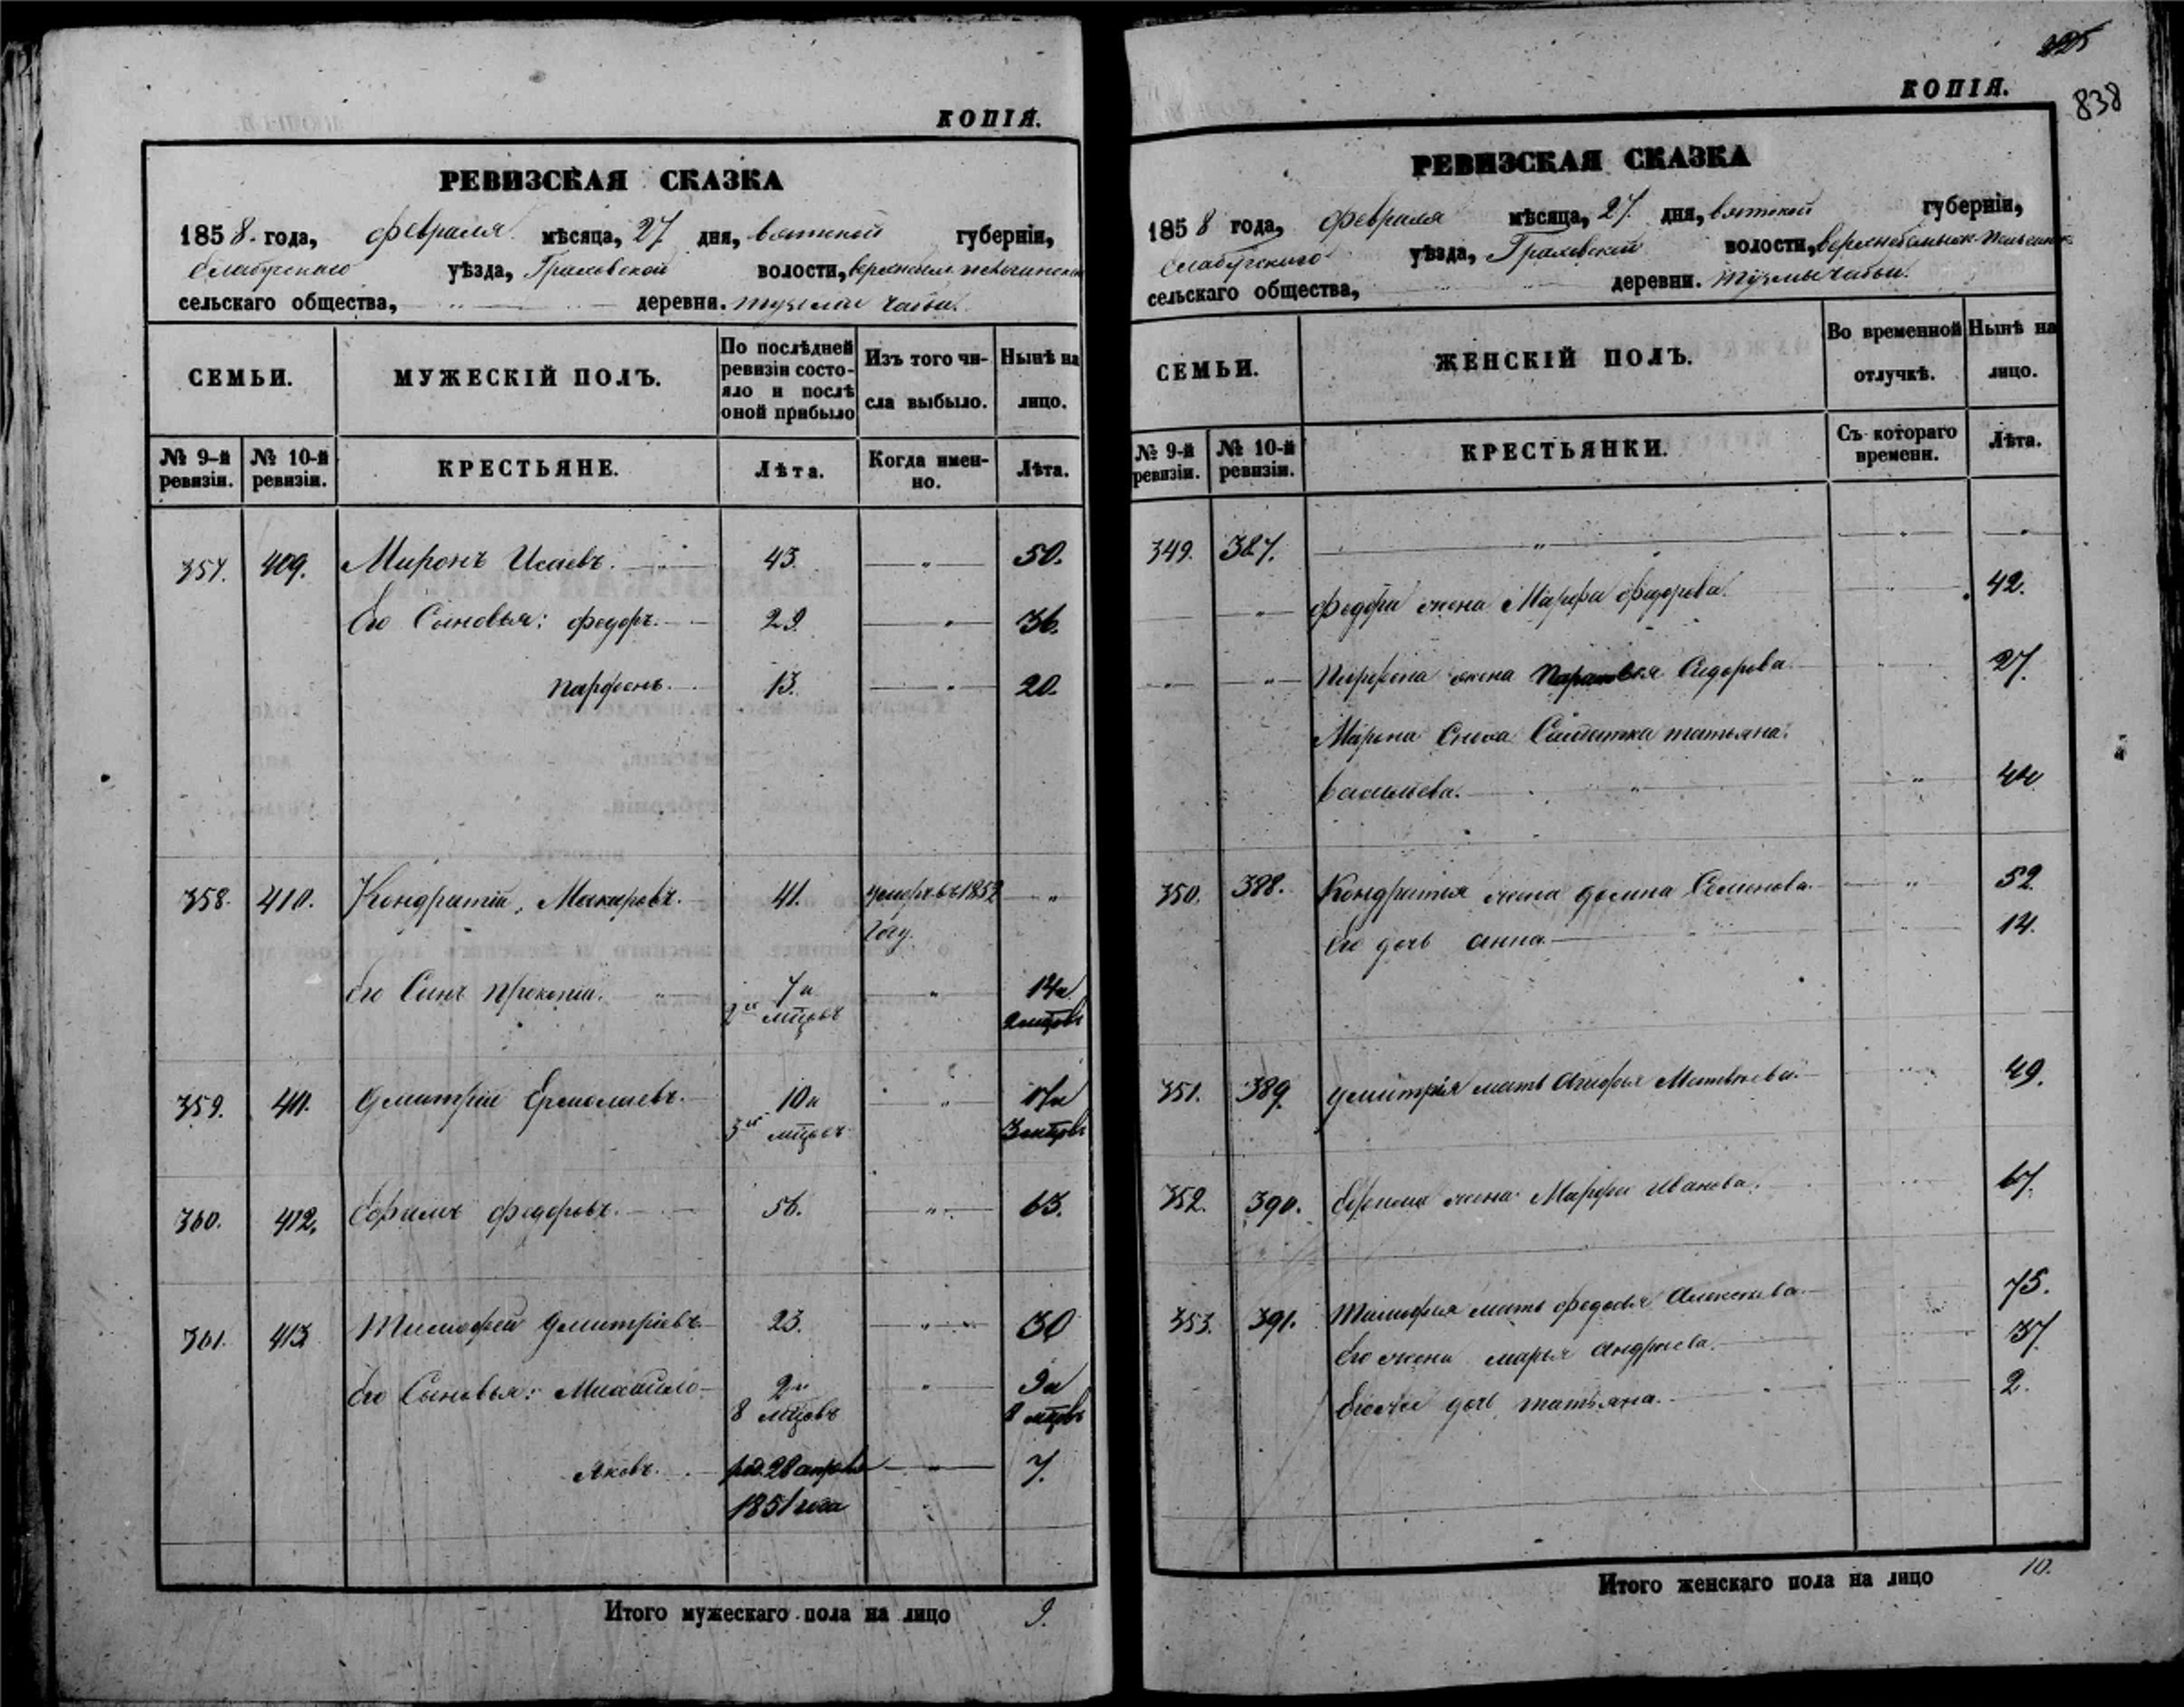 КОПІЯ.
РЕВИЗСКАЯ СКАЗКА
1858. года, февраля мѣсяца, 27 дня, вятской губерніи,
Елабугскаго уѣзда, Граховской волости,
сельскаго общества, деревни.
СЕМЬИ.
МУЖЕСКІЙ ПОЛЪ.
По послѣдней ревизіи состояло и послѣ оной прибыло
Изъ того числа выбыло.
Нынѣ на лицо.
№ 9-й ревизіи.
№ 10-й ревизіи.
КРЕСТЬЯНЕ.
Лѣта.
Когда именно.
Лѣта.
357. 409. Миронъ Исаевъ. 43. „ 50.
Его Сыновья: Федоръ. 29. „ 36.
Парфенъ. 13. „ 20.
358. 410. Кондратій Макаровъ. 41. умеръ въ 1852 „
году.
Его Сынъ Прокопій. „ 7 и „ 14 и
2хъ мцовъ 2 мцовъ
359. 411. Дмитрій Ермолаевъ. 10 и „ 17 и
3хъ мцовъ 3 мцовъ
360. 412. Ефимъ Федоровъ. 56. „ 63.
361. 413 Тимофей Дмитріевъ 23. „ 30
Его Сыновья: Михайло 2 и „ 9 и
8 мцовъ 8 мцовъ
Яковъ. род. 28 „ 7.
1851 года
Итого мужескаго пола на лицо 9.
838
КОПІЯ.
РЕВИЗСКАЯ СКАЗКА
1858 года, февраля мѣсяца, 27. дня, вятской губерніи,
Елабугскаго уѣзда, Граховской волости,
сельскаго общества, деревни.
СЕМЬИ.
ЖЕНСКІЙ ПОЛЪ.
Во временной отлучкѣ.
Нынѣ на лицо.
№ 9-й ревизіи.
№ 10-й ревизіи.
КРЕСТЬЯНКИ.
Съ котораго времени.
Лѣта.
349. 387. „ „ „
„ Федора жена Марфа Федорова. „ 42.
„ „ Парфена жена Парасковья Сидорова. 27.
Мирона Сноха Солдатка татьяна
Васильева. „ „ 44
350. 388. Кондратья жена Семенова. „ 52
Его дочь анна. 14.
351. 389. Дмитрія мать Матвѣева. 49.
352. 390. Ефима жена Марфа Иванова. 67.
353. 391. Тимофея мать федосья Алексѣева. 75.
Его жена марья Андреева. 37.
Его же дочь татьяна. 2.
Итого женскаго пола на лицо 10.